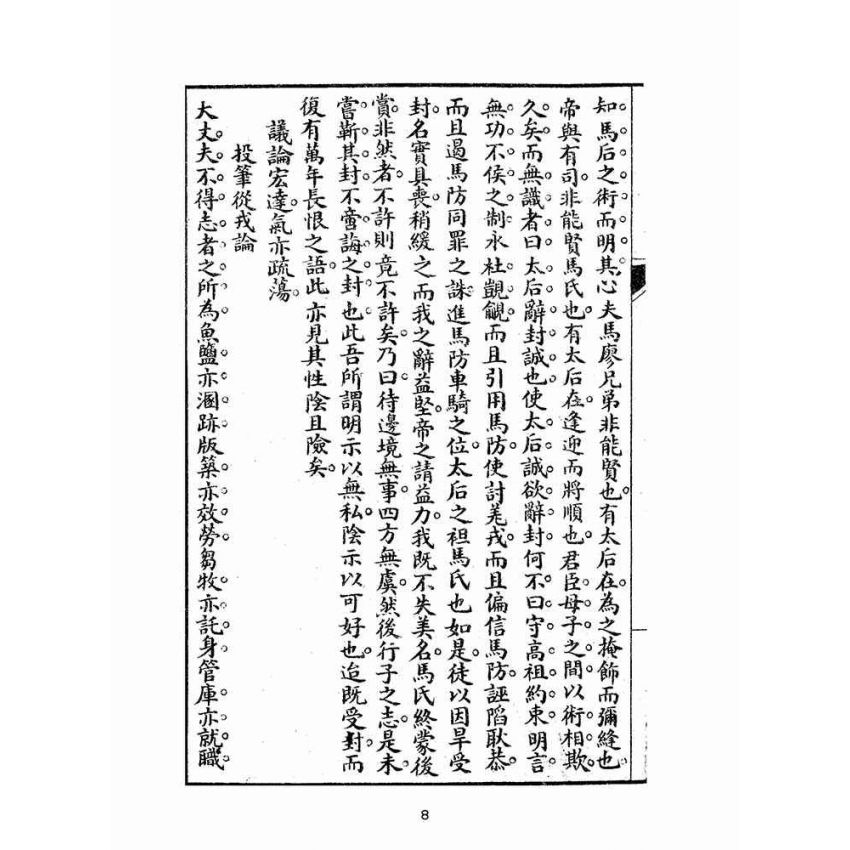 知馬后之術而明其心夫馬廖兄弟非能賢也有太后在為之掩飾而彌縫也
帝與有司非能賢馬氏也有太后在逢迎而將順也君臣母子之間以術相欺
久矣而無識者曰太后辭封誠也使太后誠欲辭封何不曰守高祖約束明言
無功不侯之制永杜覬覦而且引用馬防使討羌戎而且偏信馬防誣陷耿恭
而且過馬防同罪之誅進馬防車騎之位太后之袒馬氏也如是徒以因旱受
封名實具喪稍緩之而我之辭益堅帝之請益力我既不失美名馬氏終蒙後
賞非然者不許則竟不許矣乃曰待邊境無事四方無虞然後行子之志是未
嘗靳其封不啻誨之封也此吾所謂明示以無私陰示以可好也迨既受封而
復有萬年長恨之語此亦見其性陰且險矣
議論宏達氣亦疏蕩
投筆從戎論
大丈夫不得志者之所為魚鹽亦溷跡版築亦效勞芻牧亦託身管庫亦就職
8